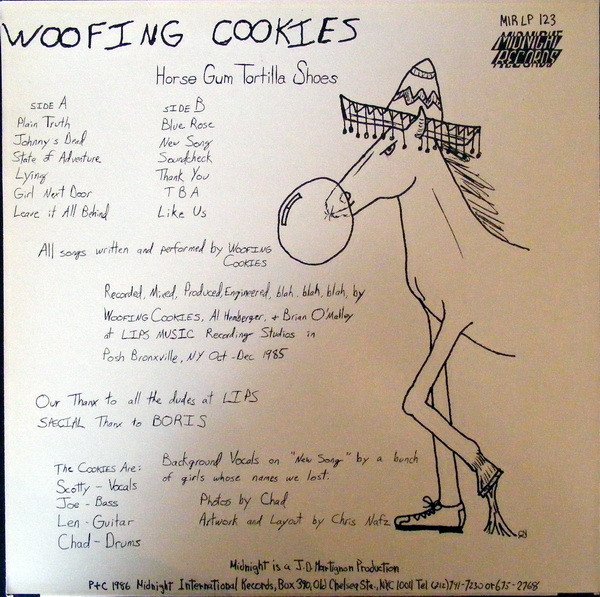 WOOFING COOKIES
MIR LP 123
MIDNIGHT
RECORDS
Horse Gum Tortilla Shoes
SIDE A
Plain Truth
Johnny's Dead
State of Adventure
Lying
Girl Next Door
Leave it All Behind
SIDE B
Blue Rose
New Song
Soundcheck
Thank You
T B A
Like Us
All songs written and performed by WOOFING
COOKIES
Recorded, Mixed, Produced, Engineered, blah, blah, blah, by
WOOFING COOKIES, Al Hemberger, + Brian O'Malley
at LIPS MUSIC Recording Studios in
Posh Bronxville, NY Oct-Dec 1985
Our Thanx to all the dudes at LIPS
SPECIAL Thanx to BORIS
The COOKIES ARE:
Scotty - Vocals
Joe - Bass
Len - Guitar
Chad - Drums
Background Vocals on "New Song" by a bunch
of girls whose names we lost.
Photos by Chad
Artwork and Layout by Chris Nafz
Midnight is a J.D. Martignon Production
P+C 1986 Midnight International Records, Box 390, Old Chelsea Sta., NYC 10011 Tel (212) 741-7230 or 675-2768